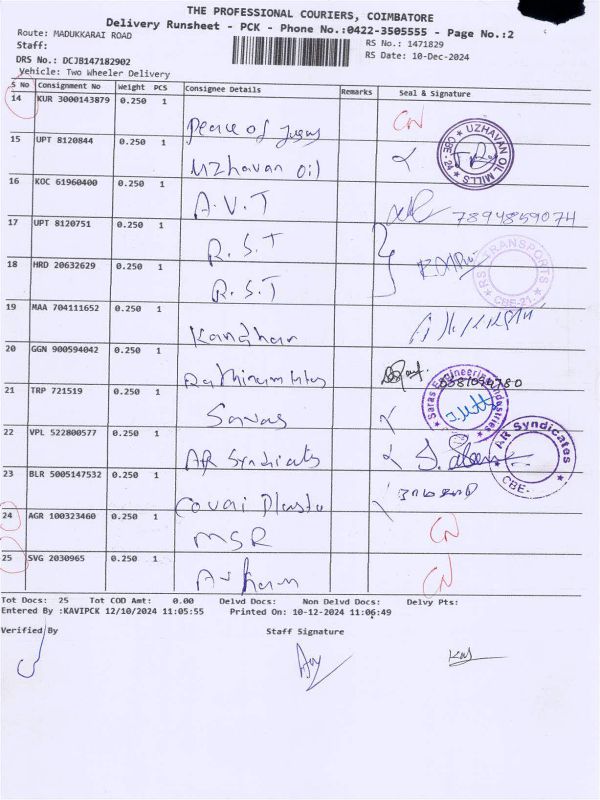 THE PROFESSIONAL COURIERS, COIMBATORE
Delivery Runsheet - PCK - Phone No.:0422-3505555 - Page No.:2
Route: MADUKKARAI ROAD
RS No.: 1471829
Staff:
RS Date: 10-Dec-2024
DRS No.: DCJB147182902
Vehicle: Two Wheeler Delivery
S No Consignment No Weight PCS Consignee Details Remarks Seal & Signature
14 KUR 3000143879 0.250 1
Peace of Jesus CN
15 UPT 8120844 0.250 1
Uzhavan oil
UZHAVAN OIL MILLS CBE - 24
16 KOC 61960400 0.250 1
A.V.T 7894859074
17 UPT 8120751 0.250 1
R.S.T
18 HRD 20632629 0.250 1
R.S.T
SRS TRANSPORTS CBE-21.
19 MAA 704111652 0.250 1
Kandhan
20 GGN 900594042 0.250 1
21 TRP 721519 0.250 1
Savas
Saras Engineering Industries
22 VPL 522800577 0.250 1
AR Syndicates
AR Syndicates CBE-
23 BLR 5005147532 0.250 1
Covai Plasto
24 AGR 100323460 0.250 1
MSR CN
25 SVG 2030965 0.250 1
CN
Tot Docs: 25 Tot COD Amt: 0.00 Delvd Docs: Non Delvd Docs: Delvy Pts:
Entered By :KAVIPCK 12/10/2024 11:05:55 Printed On: 10-12-2024 11:06:49
Verified By Staff Signature